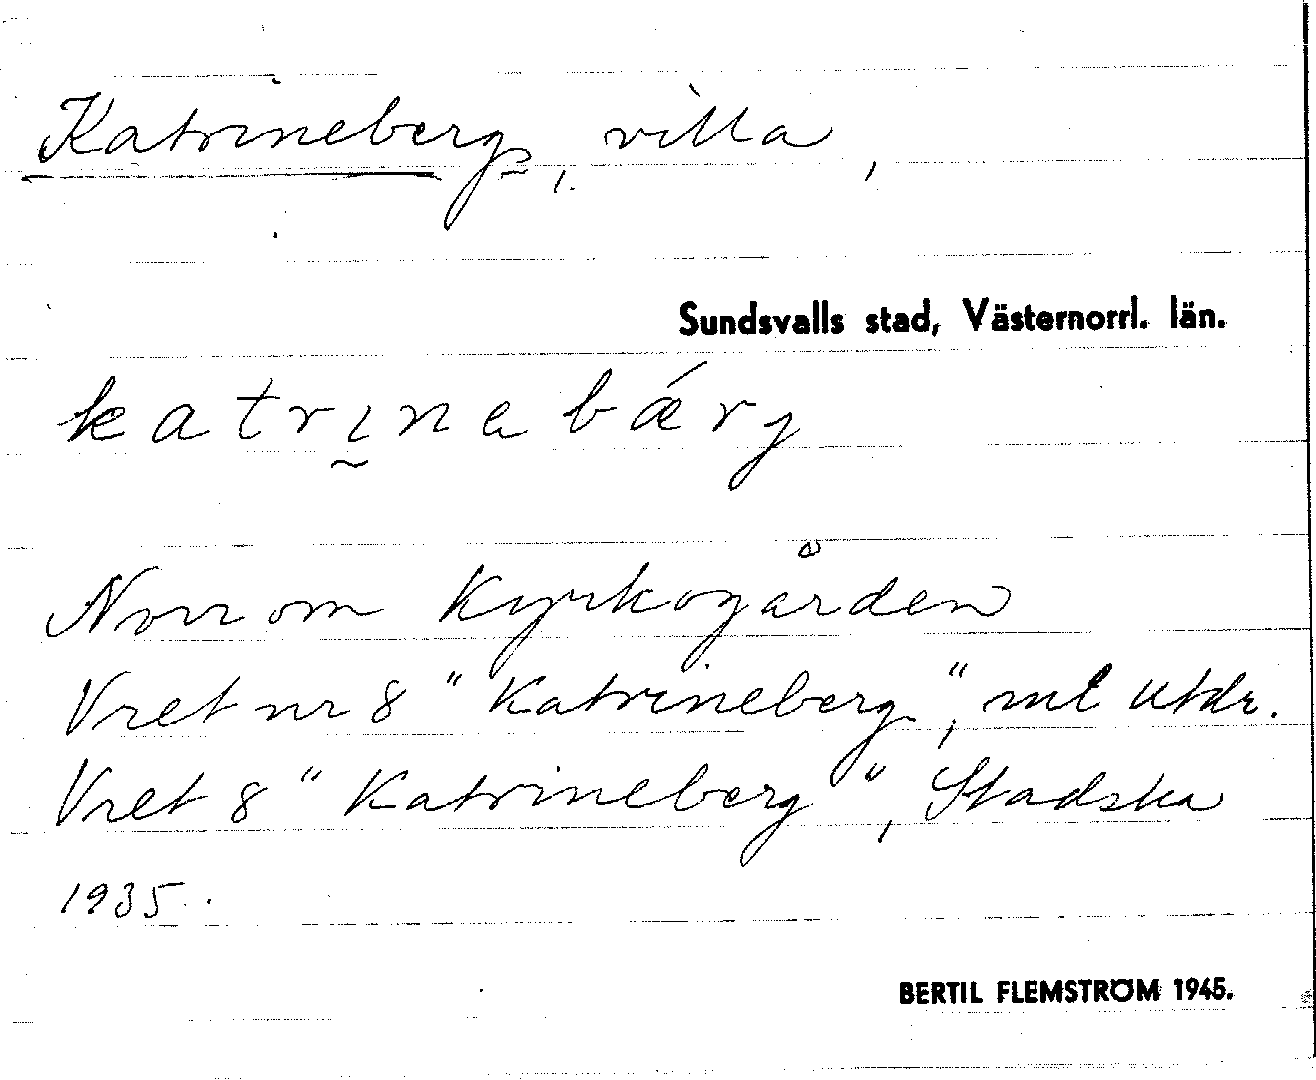 Katrineberg, villa,
Sundsvalls stad, Västernorrl. län.
katrınabǽrj
Norr om Kyrkogården
Vret nr 8 "Katrineberg", ml utdr.
Vret 8 "Katrineberg", Stadska
1935.
BERTIL FLEMSTRÖM 1945.